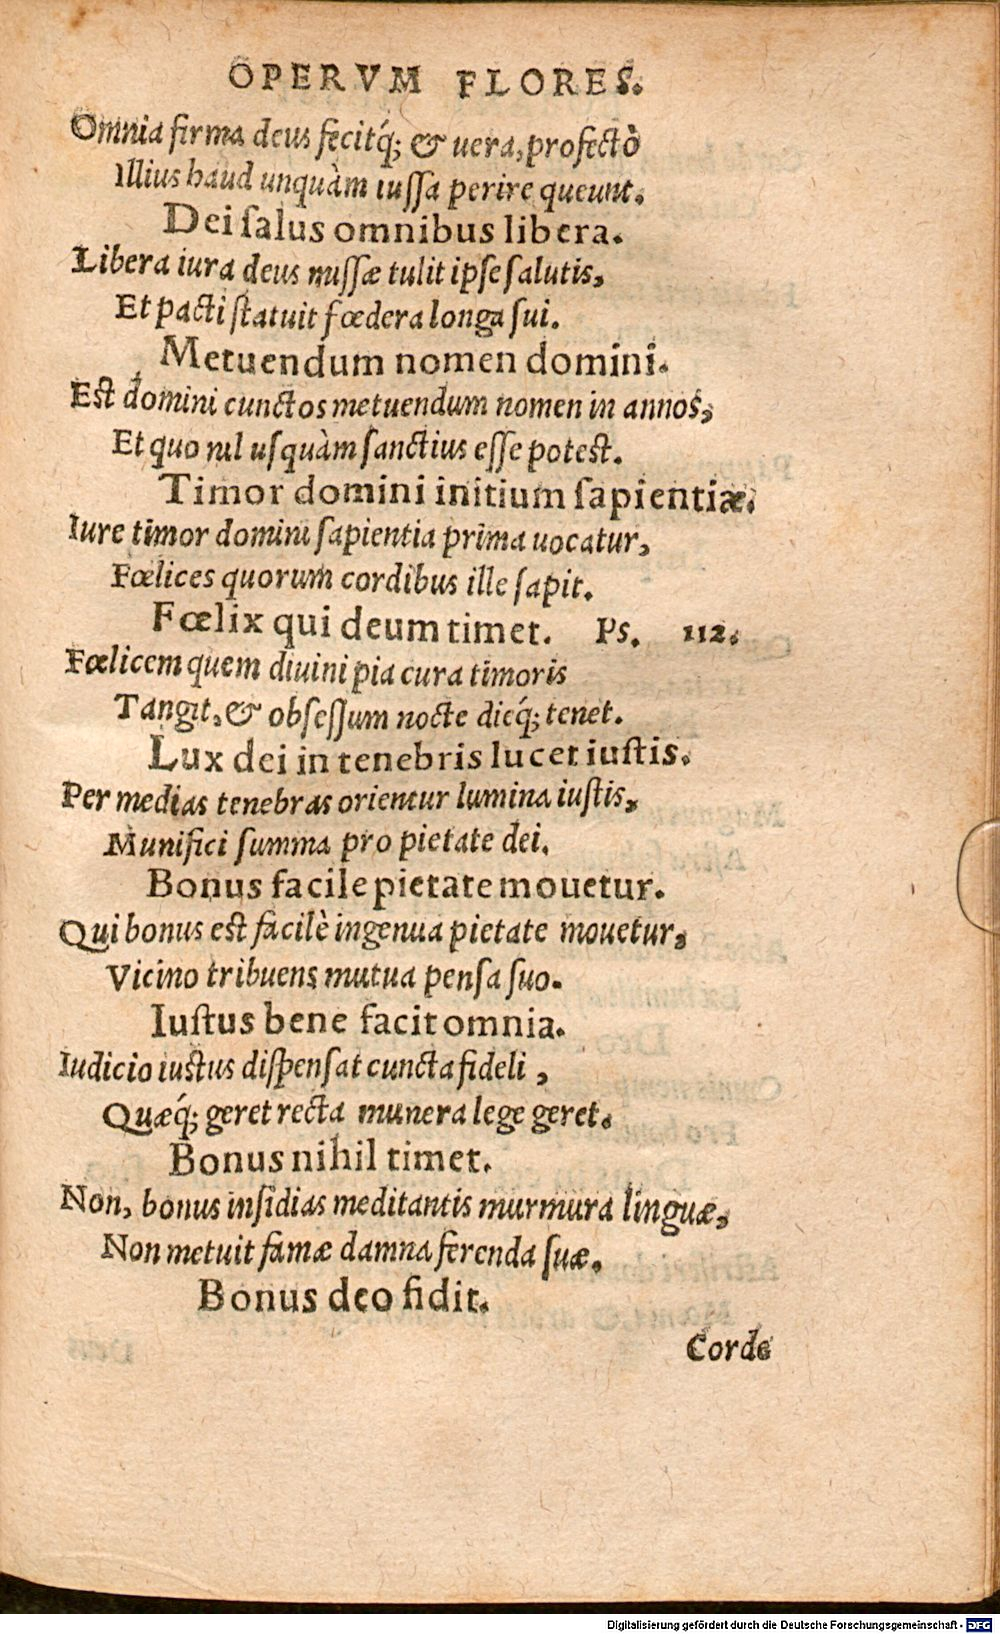 OPERVM FLORES.
Omnia firma deus fecitq́; & uera, profectò
Illius haud unquàm iussa perire queunt.
Dei salus omnibus libera.
Libera iura deus missæ tulit ipse salutis,
Et pacti statuit fœdera longa sui.
Metuendum nomen domini.
Est domini cunctos metuendum nomen in annos,
Et quo nil usquàm sanctius esse potest.
Timor domini initium sapientiæ.
Iure timor domini sapientia prima uocatur,
Fœlices quorum cordibus ille sapit.
Fœlix qui deum timet. Ps. 112.
Fœlicem quem diuini pia cura timoris
Tangit, & obsessum nocte dieq́; tenet.
Lux dei in tenebris lucet iustis.
Per medias tenebras orientur lumina iustis,
Munifici summa pro pietate dei.
Bonus facile pietate mouetur.
Qui bonus est facilè ingenua pietate mouetur,
Vicino tribuens mutua pensa suo.
Iustus bene facit omnia.
Iudicio iustus dispensat cuncta fideli,
Quæq́; geret recta munera lege geret.
Bonus nihil timet.
Non, bonus insidias meditantis murmura linguæ,
Non metuit famæ damna ferenda suæ.
Bonus deo fidit.
Corde
Digitalisierung gefördert durch die Deutsche Forschungsgemeinschaft - DFG